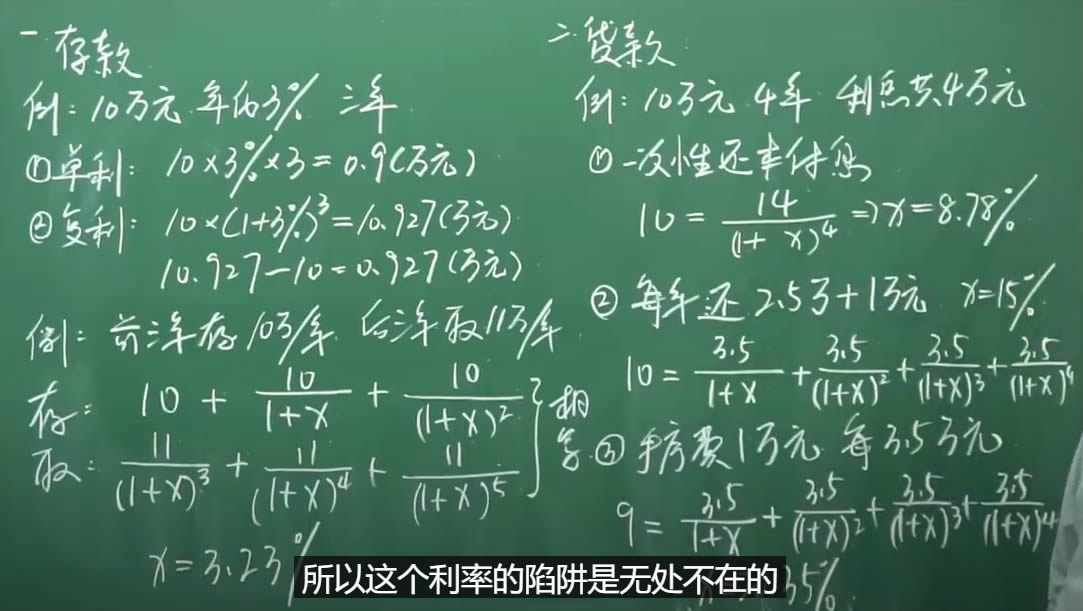 一. 存款
例: 10万元 年化3% 三年
①单利: 10×3%×3=0.9(万元)
②复利: 10×(1+3%)³=10.927(万元)
10.927-10=0.927(万元)
例: 前三年存10万/年 后三年取11万/年
存: 10 + 10/(1+x) + 10/(1+x)²
取: 11/(1+x)³ + 11/(1+x)⁴ + 11/(1+x)⁵
} 相等
x=3.23%
二. 贷款
例: 10万元 4年 利息共4万元
① 一次性还本付息
10 = 14/(1+x)⁴ => x=8.78%
② 每年还 2.5万+1万元 x=15%
10 = 3.5/(1+x) + 3.5/(1+x)² + 3.5/(1+x)³ + 3.5/(1+x)⁴
③ 手续费1万元 每3.5万元
9 = 3.5/(1+x) + 3.5/(1+x)² + 3.5/(1+x)³ + 3.5/(1+x)⁴
35%
所以这个利率的陷阱是无处不在的